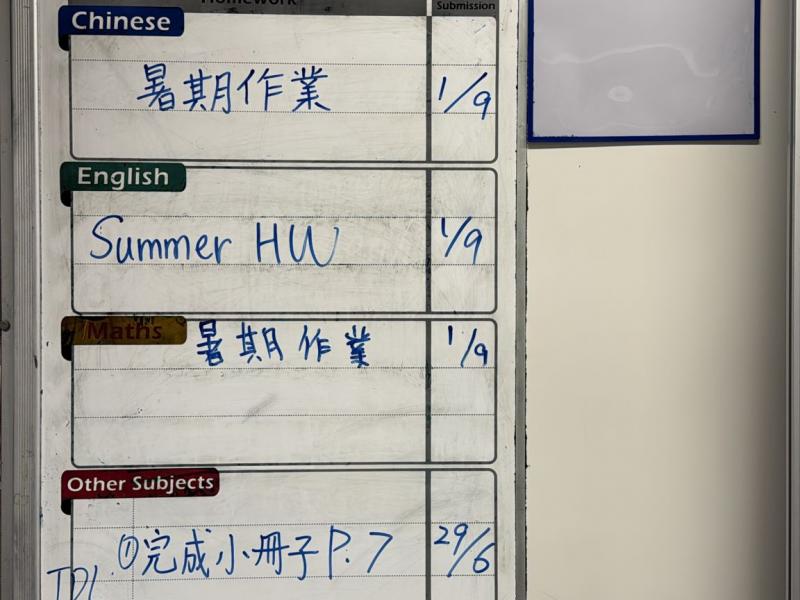 Homework Submission
Chinese
暑期作業 1/9
English
Summer HW 1/9
Maths 暑期作業 1/9
Other Subjects
①完成小冊子 P.7 29/6